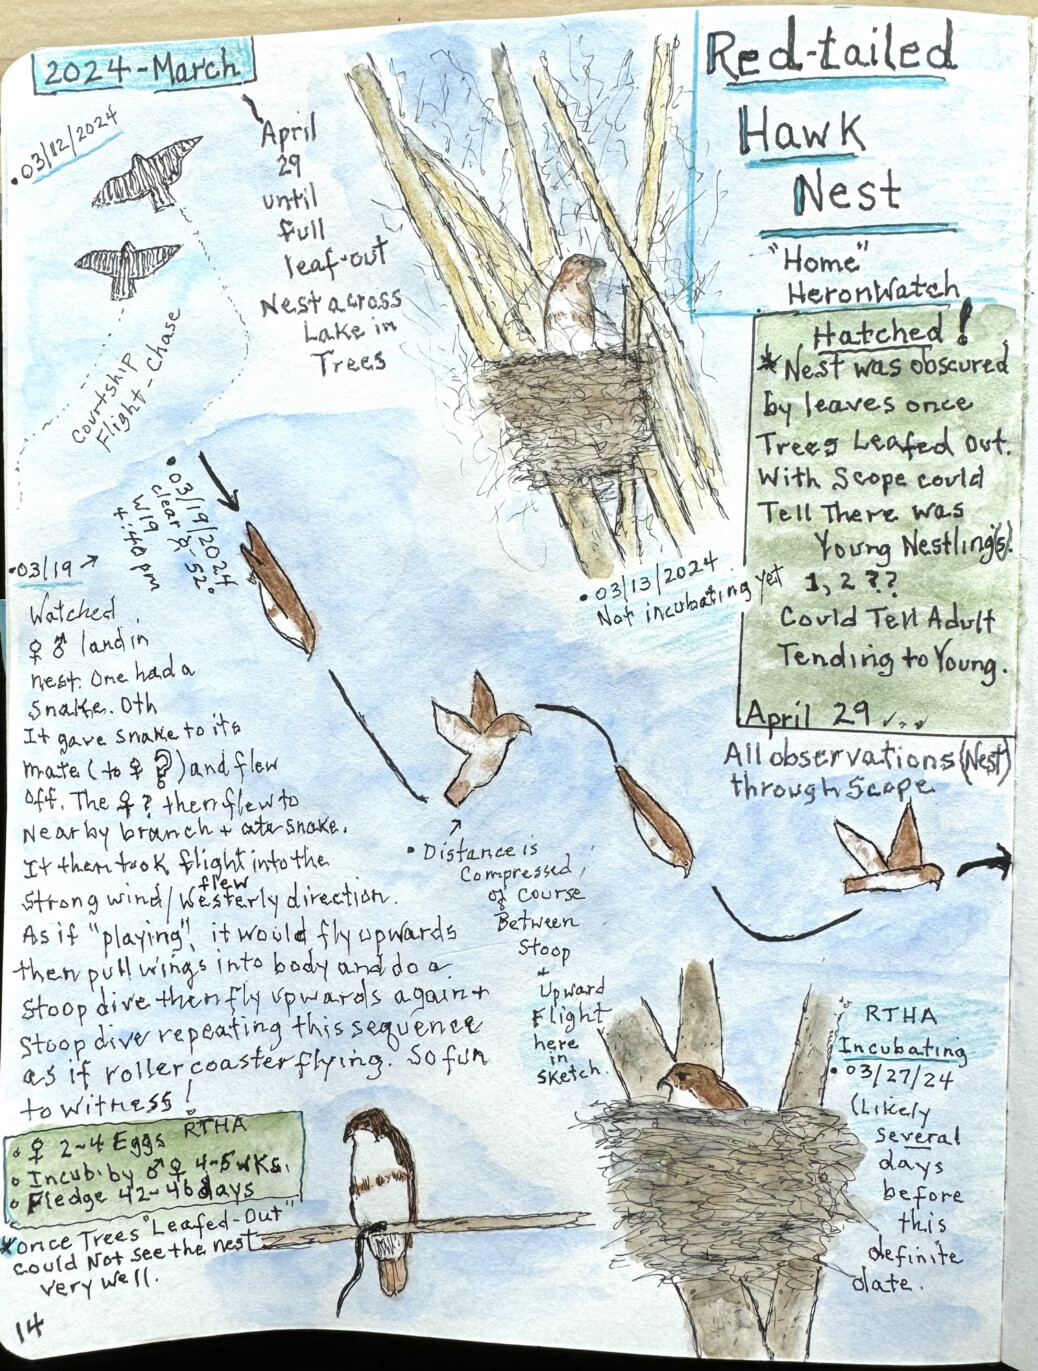 2024-March
April
29
until
full
leaf-out
Nest across
Lake in
Trees
Red-tailed
Hawk
Nest
"Home"
HeronWatch
• 03/12/2024
Courtship
Flight-Chase
• 03/13/2024.
Not incubating yet
Hatched!
*Nest was obscured
by leaves once
Trees Leafed Out.
With Scope could
Tell There was
Young Nestling(s).
1, 2 ??
Could Tell Adult
Tending to Young.
April 29...
All observations (Nest)
through Scope
• 03/19/2024
clear 52°
W19
4:40 pm
• 03/19 →
Watched
♀ ♂ land in
nest. One had a
Snake. Oth
It gave snake to its
mate (to ♀ ?) and flew
off. The ♀? then flew to
Nearby branch + ate snake.
It then took flight into the
strong wind/flew Westerly direction.
As if "playing", it would fly upwards
then pull wings into body and do a
Stoop dive then fly upwards again +
Stoop dive repeating this sequence
as if roller coaster flying. So fun
to witness!
• Distance is
Compressed,
of Course
Between
Stoop
+
Upward
Flight
here
in
Sketch.
RTHA
Incubating
• 03/27/24
(Likely
several
days
before
this
definite
date.
RTHA
• ♀ 2-4 Eggs
• Incub. by ♂ ♀ 4-5 wks.
• Fledge 42-46 days
*once Trees "Leafed-Out"
could Not see the nest
very well.
14